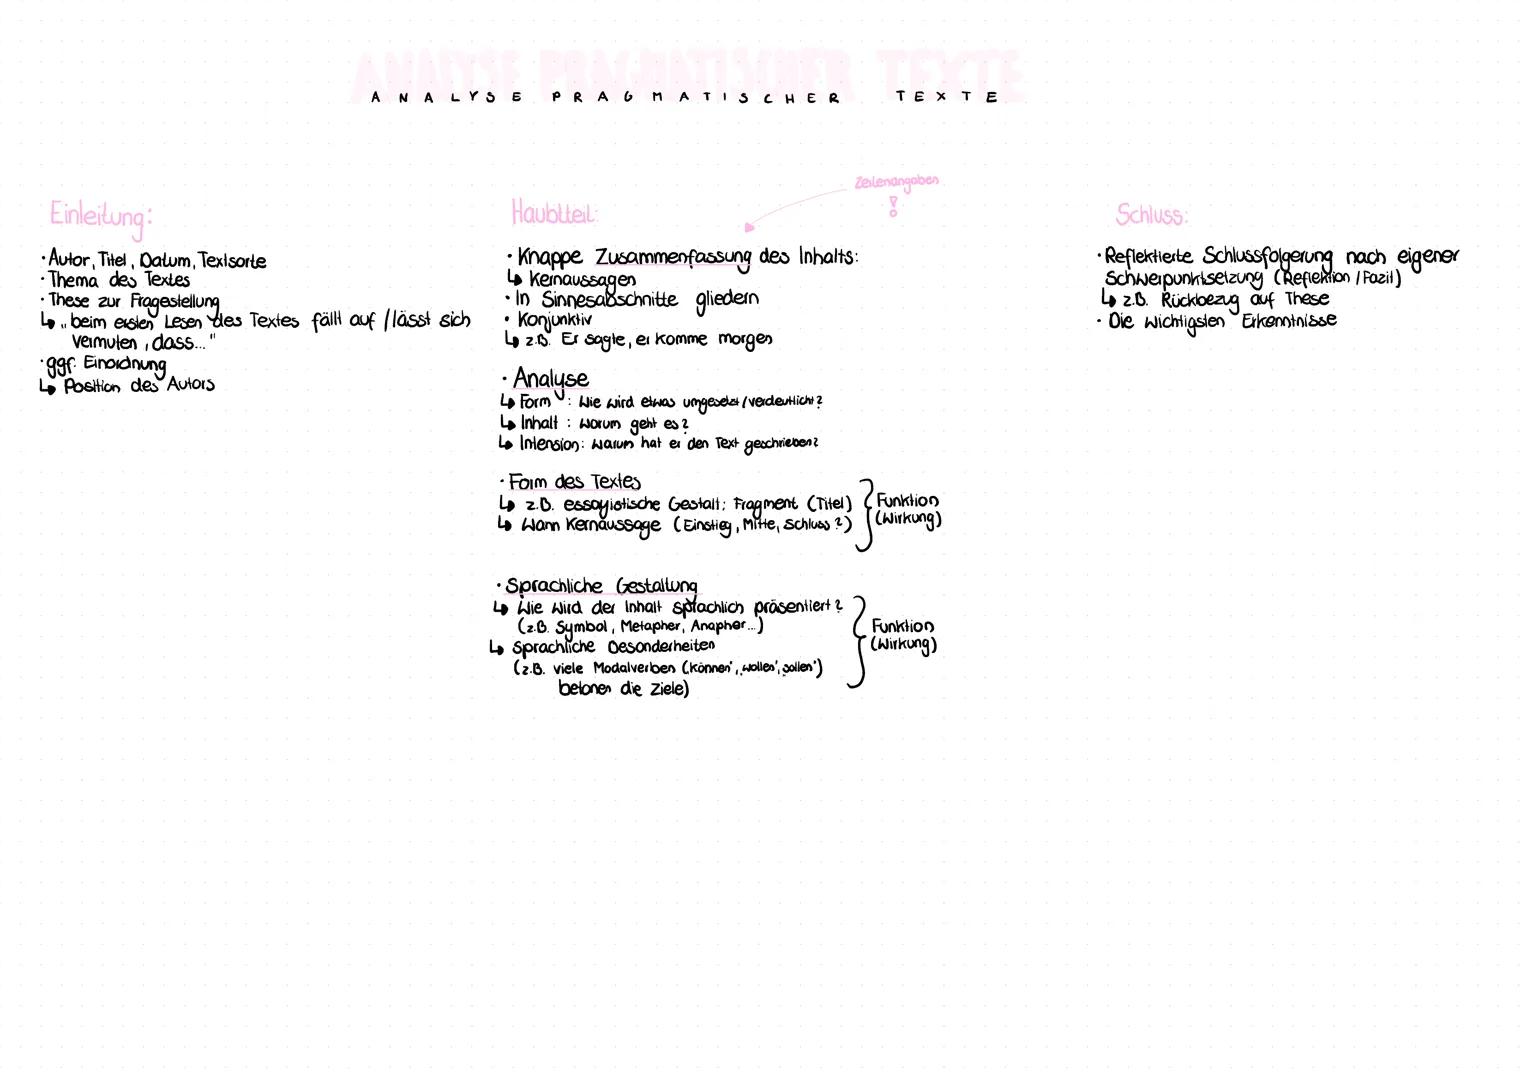 ANALYSE PRAGMATISCHER TEXTE
ANALYSE PRAGMATISCHER TEXTE
Einleitung:
· Autor, Titel, Datum, Textsorte
· Thema des Textes
· These zur Fragestellung
↳ „beim ersten Lesen des Textes fällt auf / lässt sich
vermuten, dass..."
· ggf. Einordnung
↳ Position des Autors
Zeilenangaben
!
Haubtteil:
· Knappe Zusammenfassung des Inhalts:
↳ Kernaussagen
· In Sinnesabschnitte gliedern
· Konjunktiv
↳ z.B. Er sagte, er komme morgen
· Analyse
↳ Form : Wie wird etwas umgesetzt / verdeutlicht?
↳ Inhalt : worum geht es?
↳ Intension: warum hat er den Text geschrieben?
· Form des Textes
↳ z.B. essayistische Gestalt; Fragment (Titel)
↳ Wann Kernaussage (Einstieg, Mitte, Schluss?)
Funktion
(Wirkung)
· Sprachliche Gestaltung
↳ Wie wird der Inhalt sprachlich präsentiert?
(z.B. Symbol, Metapher, Anapher...)
↳ Sprachliche Besonderheiten
(z.B. viele Modalverben (‚können', ‚wollen', ‚sollen')
betonen die Ziele)
Funktion
(Wirkung)
Schluss:
· Reflektierte Schlussfolgerung nach eigener
Schwerpunktsetzung (Reflektion / Fazit)
↳ z.B. Rückbezug auf These
· Die wichtigsten Erkenntnisse